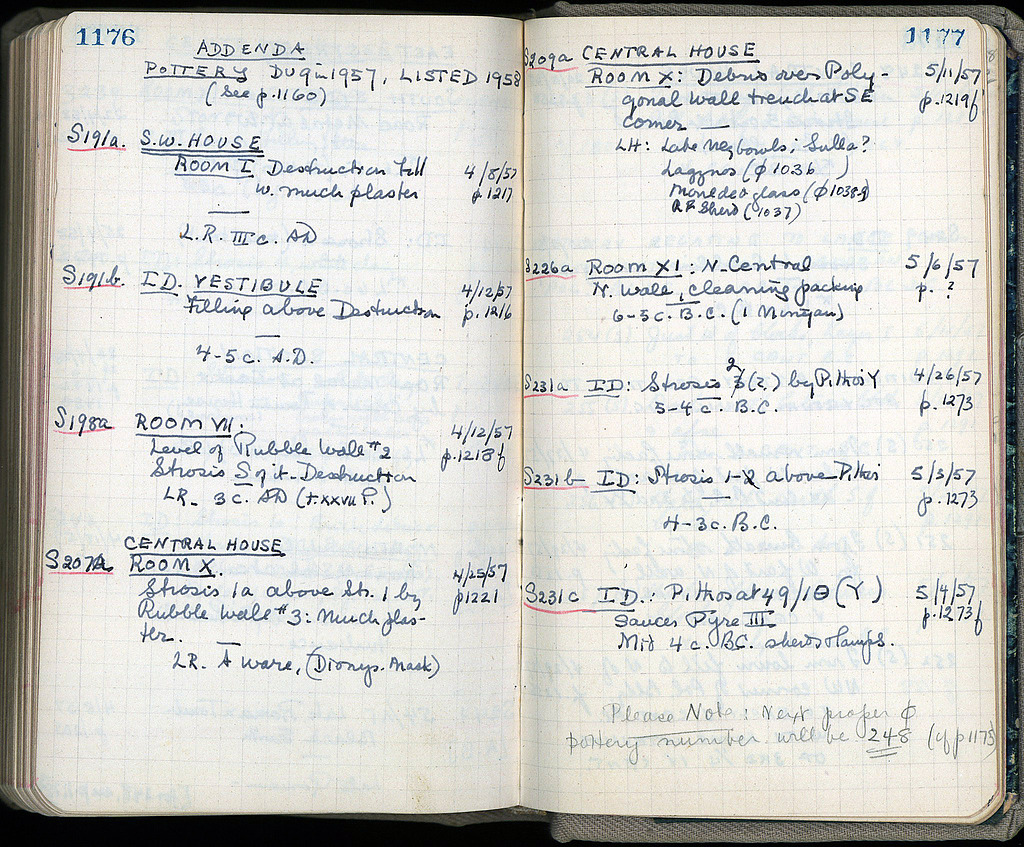 1176
ADDENDA
POTTERY Dug in 1957, LISTED 1958
(See p. 1160)
S191a. S.W. HOUSE
ROOM I Destruction fill 4/8/57
w. much plaster p. 1217
L.R. III c. AD
S191b. ID. VESTIBULE 4/12/57
Filling above Destruction p. 1216
4-5 c. A.D.
S198a ROOM VII: 4/12/57
Level of Rubble Wall #2 p. 1218 f
Strosis S of it - Destruction
LR. 3 c. AD (F. XXVII P.)
CENTRAL HOUSE
S207a ROOM X. 4/25/57
Strosis 1a above Str. 1 by p 1221
Rubble wall #3: Much plas-
ter.
LR. A ware, (Dionys. Mask)
1177
S209a CENTRAL HOUSE
ROOM X: Debris over Poly- 5/11/57
gonal Wall trench at SE p. 1219f
corner
LH: Late Meg bowls; Sulla?
Lagynos (φ 1036 )
Moulded glass (φ 1038-9)
R.F. Sherd (1037)
S226a ROOM XI: N. Central 5/6/57
N. Wall, cleaning packing p. ?
6-5 c. B.C. (1 Minyan)
S231a ID: Strosis 2 (2.) by Pithos Y 4/26/57
5-4 c. B.C. p. 1273
S231b ID: Strosis 1-2 above Pithos 5/3/57
p. 1273
4-3 c. B.C.
S231c ID.: Pithos at 49/ΙΘ (Y) 5/4/57
Saucer Pyre III p. 1273f
Mid 4 c. BC. sherds & lamps.
Please Note: Next proper φ
pottery number will be 248 (cf p 1175)